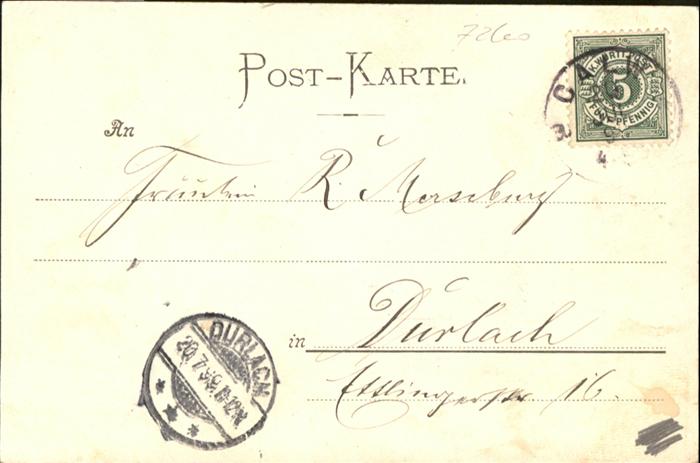 72600
POST-KARTE.
K.WÜRTT.POST
5
FÜNF PFENNIG
CALW
An
Fräulein R. Merseburg
in Durlach
Ettlingerstr. 16.
DURLACH
20.7.99. 11-12V.